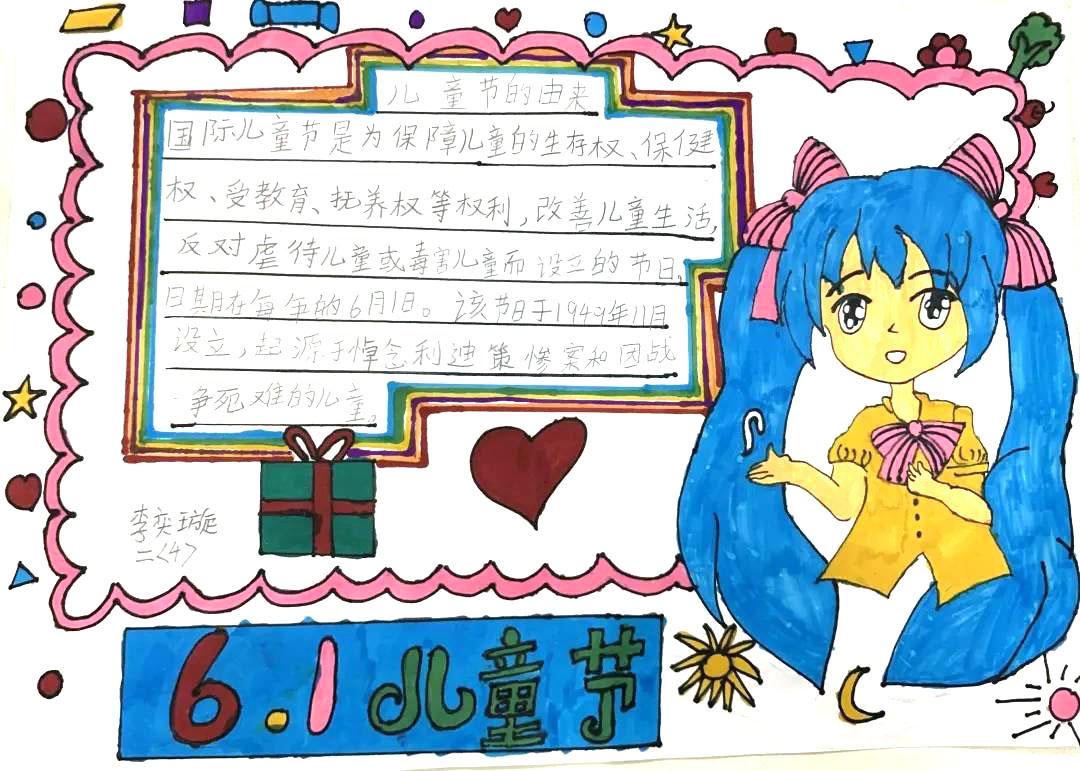 儿童节的由来
国际儿童节是为保障儿童的生存权、保健
权、受教育、抚养权等权利，改善儿童生活，
反对虐待儿童或毒害儿童而设立的节日。
日期在每年的6月1日。该节日于1949年11月
设立，起源于悼念利迪策惨案和因战
争死难的儿童。
李奕璇
二<4>
6.1儿童节